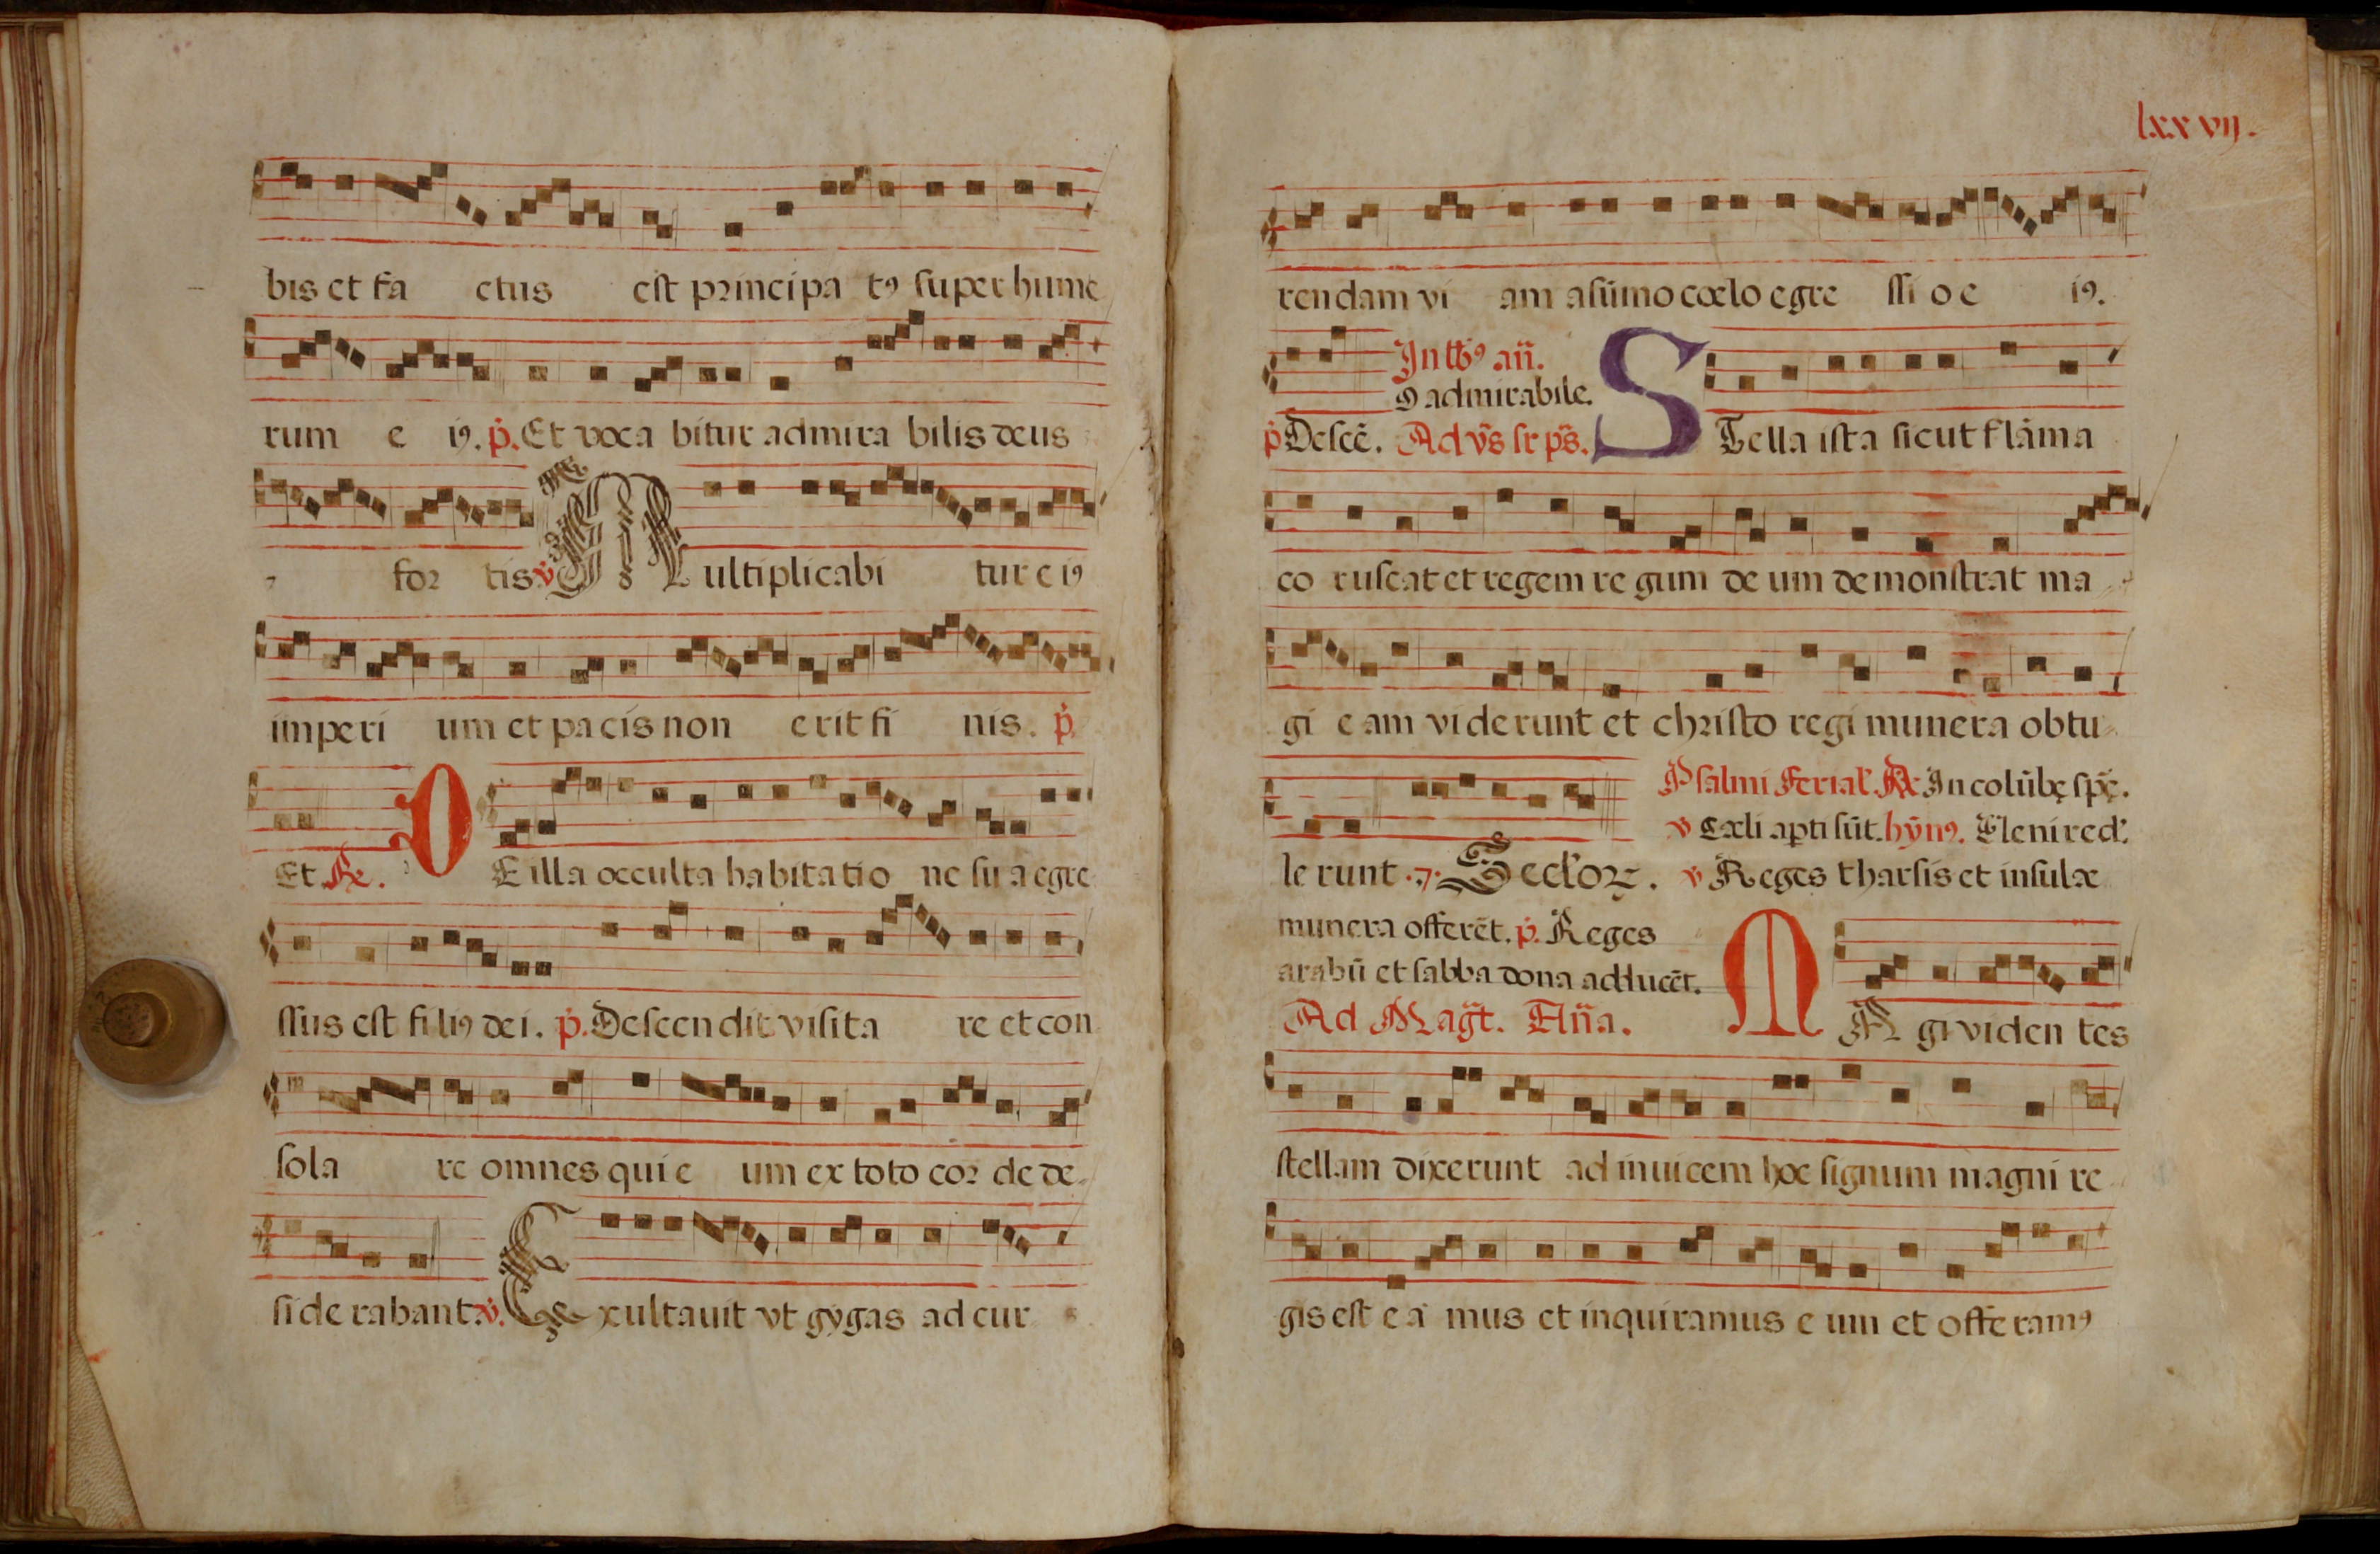 bis et fa ctus est principa tꝰ ſuper hume
rum e iꝰ. p̄. Et voca bitur admira bilis deus
for tis v̄ Multiplicabi tur e iꝰ
imperi um et pacis non erit fi nis. p̄
Et ℟.
DE illa occulta habitatio ne ſua egre
ſſus est filiꝰ dei. p̄. Deſcendit viſita re et con
ſola re omnes qui e um ex toto cor de de
ſide rabant. v̄. Exultauit vt gygas ad cur
lxxvij.
rendam vi am aſūmo cœlo egre ſſi o e iꝰ.
In lłbꝰ an̄.
O admirabile.
p̄ Deſcē. Ad v̄s ſr ps̄.
STella iſta ſicut flāma
co ruſcat et regem re gum de um demonſtrat ma
gi eam viderunt et chriſto regi munera obtu
le runt. ⁊. Seclorꝝ.
Pſalmi Ferial'. ℟ In colūbę ſpę̄.
v Cæli apti ſūt. hȳnꝰ. Pleni red'.
v Reges tharſis et inſulæ
munera offerēt. p̄. Reges
arabū et ſabba dona adducēt.
Ad Mag̃t. An̄a.
MAgi viden tes
ſtellam dixerunt ad inuicem hoc ſignum magni re
gis eſt eā mus et inquiramus e um et offe ramꝰ